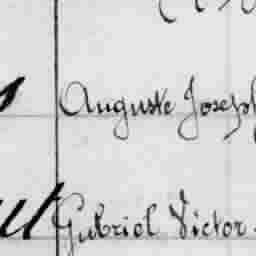 Auguste Joseph
Gabriel Victor